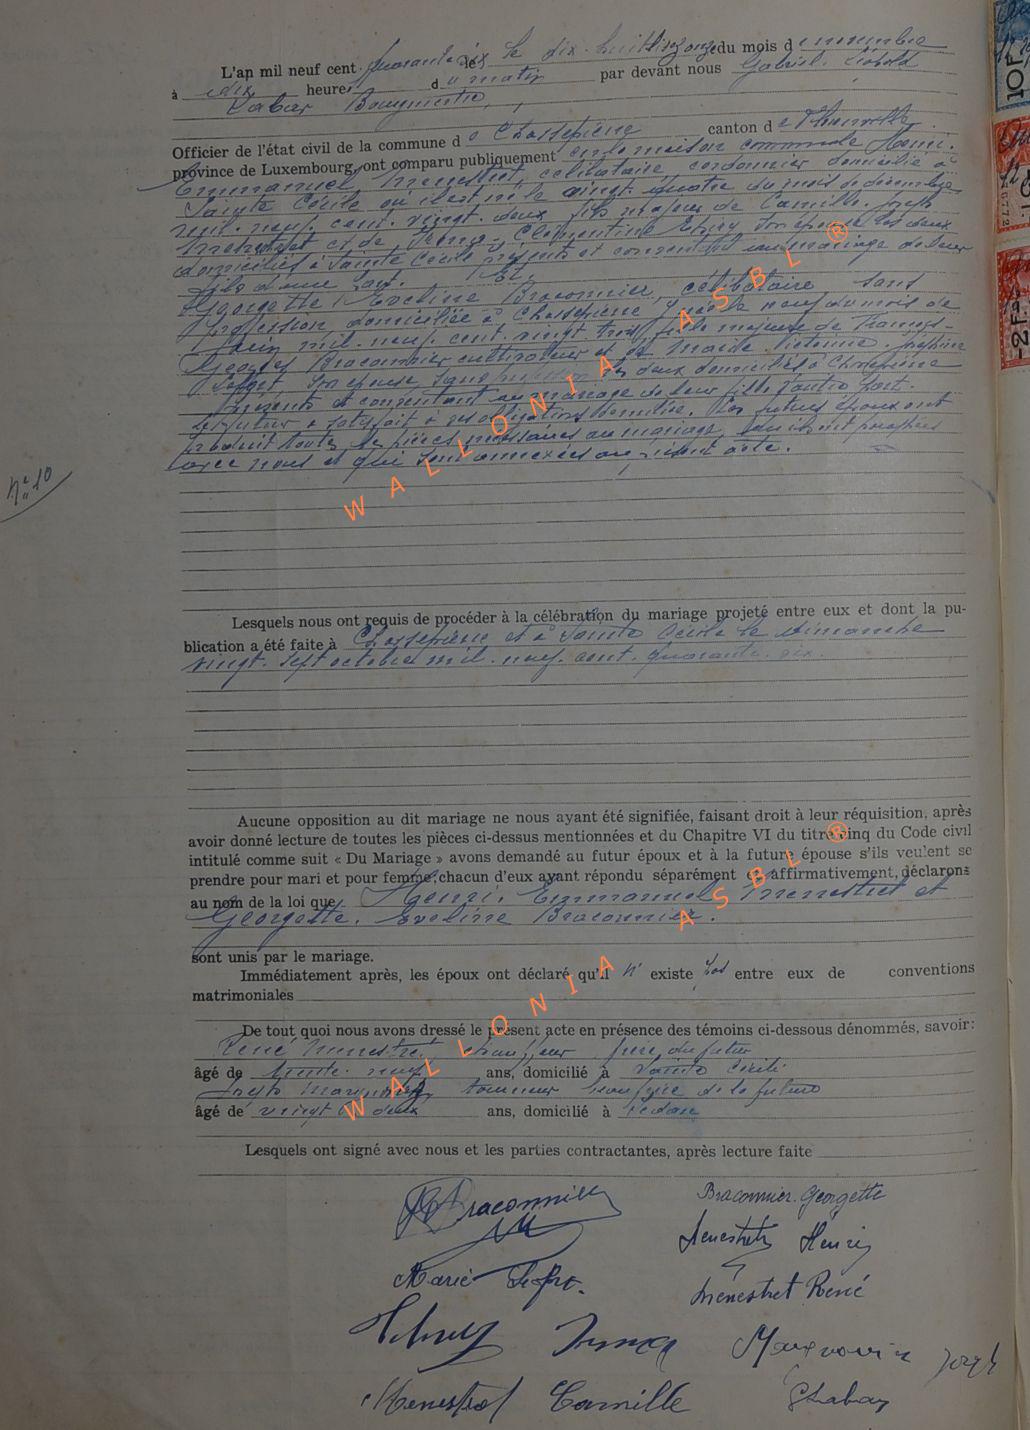 L'an mil neuf cent quarante six le dix huit du mois de novembre
à dix heures du matin par devant nous Gabriel Léopold
Labar Bourgmestre,
Officier de l'état civil de la commune de Chassepierre canton de Florenville
province de Luxembourg, ont comparu publiquement en la maison communale Henri.
Emmanuel Menestret, célibataire, cordonnier domicilié à
Sainte Cécile où il est né le vingt-quatre du mois de décembre
mil. neuf. cent. vingt. deux fils majeur de Camille. Joseph
Menestret et de Clémentine son épouse les deux
domiciliés à Sainte Cécile présents et consentant au mariage de leur
fils d'une part. Et,
Georgette Eveline Braconnier, célibataire, sans
profession, domiciliée à Chassepierre née le neuf du mois de
juin mil. neuf. cent. vingt trois fille majeure de
Georges Braconnier cultivateur et de Marie Victorine. Joséphine
son épouse sans profession les deux domiciliés à Chassepierre
présents et consentant au mariage de leur fille d'autre part.
Le futur a satisfait à ses obligations de milice. Les futurs époux ont
produit toutes les pièces nécessaires au mariage,
avec nous et qui sont annexées au présent acte.
n° 10
Lesquels nous ont requis de procéder à la célébration du mariage projeté entre eux et dont la pu-
blication a été faite à Chassepierre et à Sainte Cécile le dimanche
vingt. sept octobre mil. neuf. cent. quarante. six.
Aucune opposition au dit mariage ne nous ayant été signifiée, faisant droit à leur réquisition, après
avoir donné lecture de toutes les pièces ci-dessus mentionnées et du Chapitre VI du titre cinq du Code civil
intitulé comme suit « Du Mariage » avons demandé au futur époux et à la future épouse s'ils veulent se
prendre pour mari et pour femme, chacun d'eux ayant répondu séparément et affirmativement, déclarons
au nom de la loi que Henri. Emmanuel Menestret et
Georgette. Eveline Braconnier.
sont unis par le mariage.
Immédiatement après, les époux ont déclaré qu'il n' existe pas entre eux de conventions
matrimoniales
De tout quoi nous avons dressé le présent acte en présence des témoins ci-dessous dénommés, savoir:
René Menestret, chauffeur frère du futur
âgé de trente neuf ans, domicilié à Sainte Cécile
tourneur beau frère de la future
âgé de vingt deux ans, domicilié à Sedan
Lesquels ont signé avec nous et les parties contractantes, après lecture faite
Braconnier Braconnier. Georgette
Menestret Henri
Marie Menestret René
Menestret Camille GLabar
WALLONIA ASBL ®
WALLONIA ASBL ®
10F